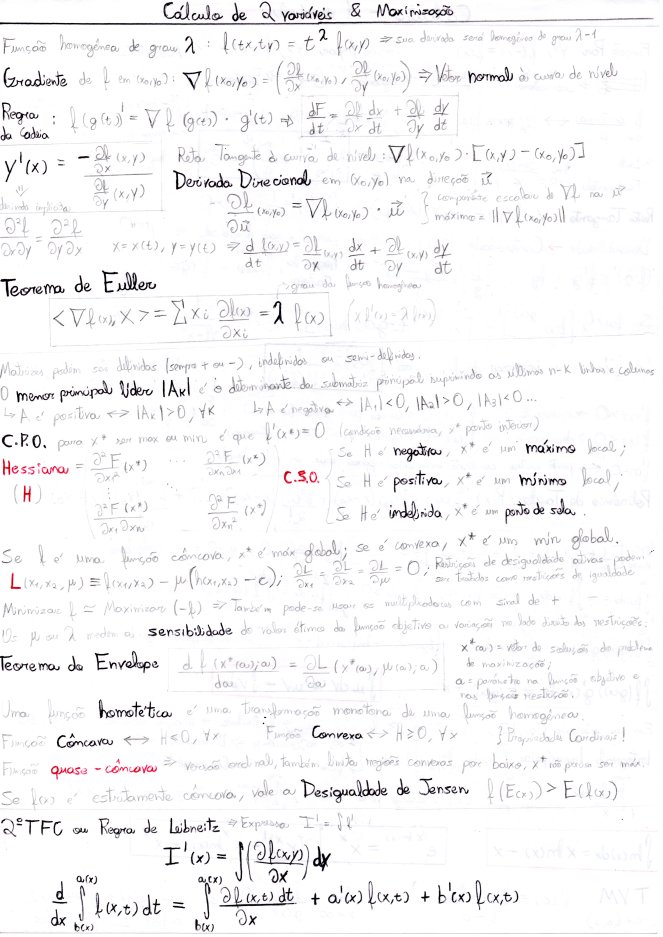 Cálculo de 2 variáveis & Maximização
Função homogênea de grau λ : f(tx,ty) = t^λ f(x,y) ⇒ sua derivada será homogênea de grau λ-1
Gradiente de f em (x₀,y₀): ∇f(x₀,y₀) = (∂f/∂x (x₀,y₀), ∂f/∂y (x₀,y₀)) ⇒ Vetor normal à curva de nível
Regra da Cadeia : f(g(t))' = ∇f(g(t)) · g'(t) ⇒ dF/dt = ∂f/∂x dx/dt + ∂f/∂y dy/dt
y'(x) = - ∂f/∂x (x,y) / ∂f/∂y (x,y)
Reta Tangente à curva de nível: ∇f(x₀,y₀)·[(x,y) - (x₀,y₀)]
Derivada Direcional em (x₀,y₀) na direção u⃗
derivada implícita
∂f/∂u⃗ (x₀,y₀) = ∇f(x₀,y₀) · u⃗ } componente escalar de ∇f na u⃗
máximo = ||∇f(x₀,y₀)||
∂²f/∂x∂y = ∂²f/∂y∂x x=x(t), y=y(t) ⇒ d f(x,y)/dt = ∂f/∂x (x,y) dx/dt + ∂f/∂y (x,y) dy/dt
Teorema de Euller
grau da função homogênea
<∇f(x), X> = Σ xᵢ ∂f(x)/∂xᵢ = λ f(x) (x f'(x) = λ f(x))
Matrizes podem ser definidas (sempre + ou -), indefinidas ou semi-definidas.
O menor principal líder |Aₖ| é o determinante da submatriz principal suprimindo as últimas n-k linhas e colunas
↳ A é positiva ⟷ |Aₖ|>0, ∀k ↳ A é negativa ⟷ |A₁|<0, |A₂|>0, |A₃|<0 ...
C.P.O. para x* ser max ou min é que f'(x*)=0 (condição necessária, x* ponto interior)
Hessiana (H) = ∂²F/∂x₁² (x*) ... ∂²F/∂xₙ∂x₁ (x*)
∂²F(x*)/∂x₁∂xₙ ∂²F/∂xₙ² (x*)
C.S.O. Se H é negativa, x* é um máximo local;
Se H é positiva, x* é um mínimo local;
Se H é indefinida, x* é um ponto de sela.
Se f é uma função côncava, x* é máx global; se é convexa, x* é um min global.
L(x₁,x₂,μ) ≡ f(x₁,x₂) - μ(h(x₁,x₂) - c); ∂L/∂x₁ = ∂L/∂x₂ = ∂L/∂μ = 0; Restrições de desigualdade ativas podem ser tratadas como restrições de igualdade
Minimizar f ≃ Maximizar (-f) ⇒ Também pode-se usar os multiplicadores com sinal de +
Os μ ou λ medem a sensibilidade do valor ótimo da função objetivo a variação no lado direito das restrições.
Teorema do Envelope d f(x*(a);a)/da = ∂L/∂a (x*(a), μ(a), a)
x*(a) = vetor de solução do problema de maximização;
a = parâmetro na função objetivo e nas funções restrição.
Uma função homotética é uma transformação monótona de uma função homogênea.
Função Côncava ⟷ H≤0, ∀x Função Convexa ⟷ H≥0, ∀x } Propriedades Cardinais!
Função quase-côncava ⇒ versão ordinal, também limita regiões convexas por baixo, x* não precisa ser máx.
Se f(x) é estritamente côncava, vale a Desigualdade de Jensen f(E(x)) > E(f(x))
2º TFC ou Regra de Leibneitz ⇒ Expressa I' = ∫f'
I'(x) = ∫(∂f(x,y)/∂x) dy
d/dx ∫ b(x) a(x) f(x,t) dt = ∫ b(x) a(x) ∂f(x,t) dt/∂x + a'(x) f(x,t) + b'(x) f(x,t)